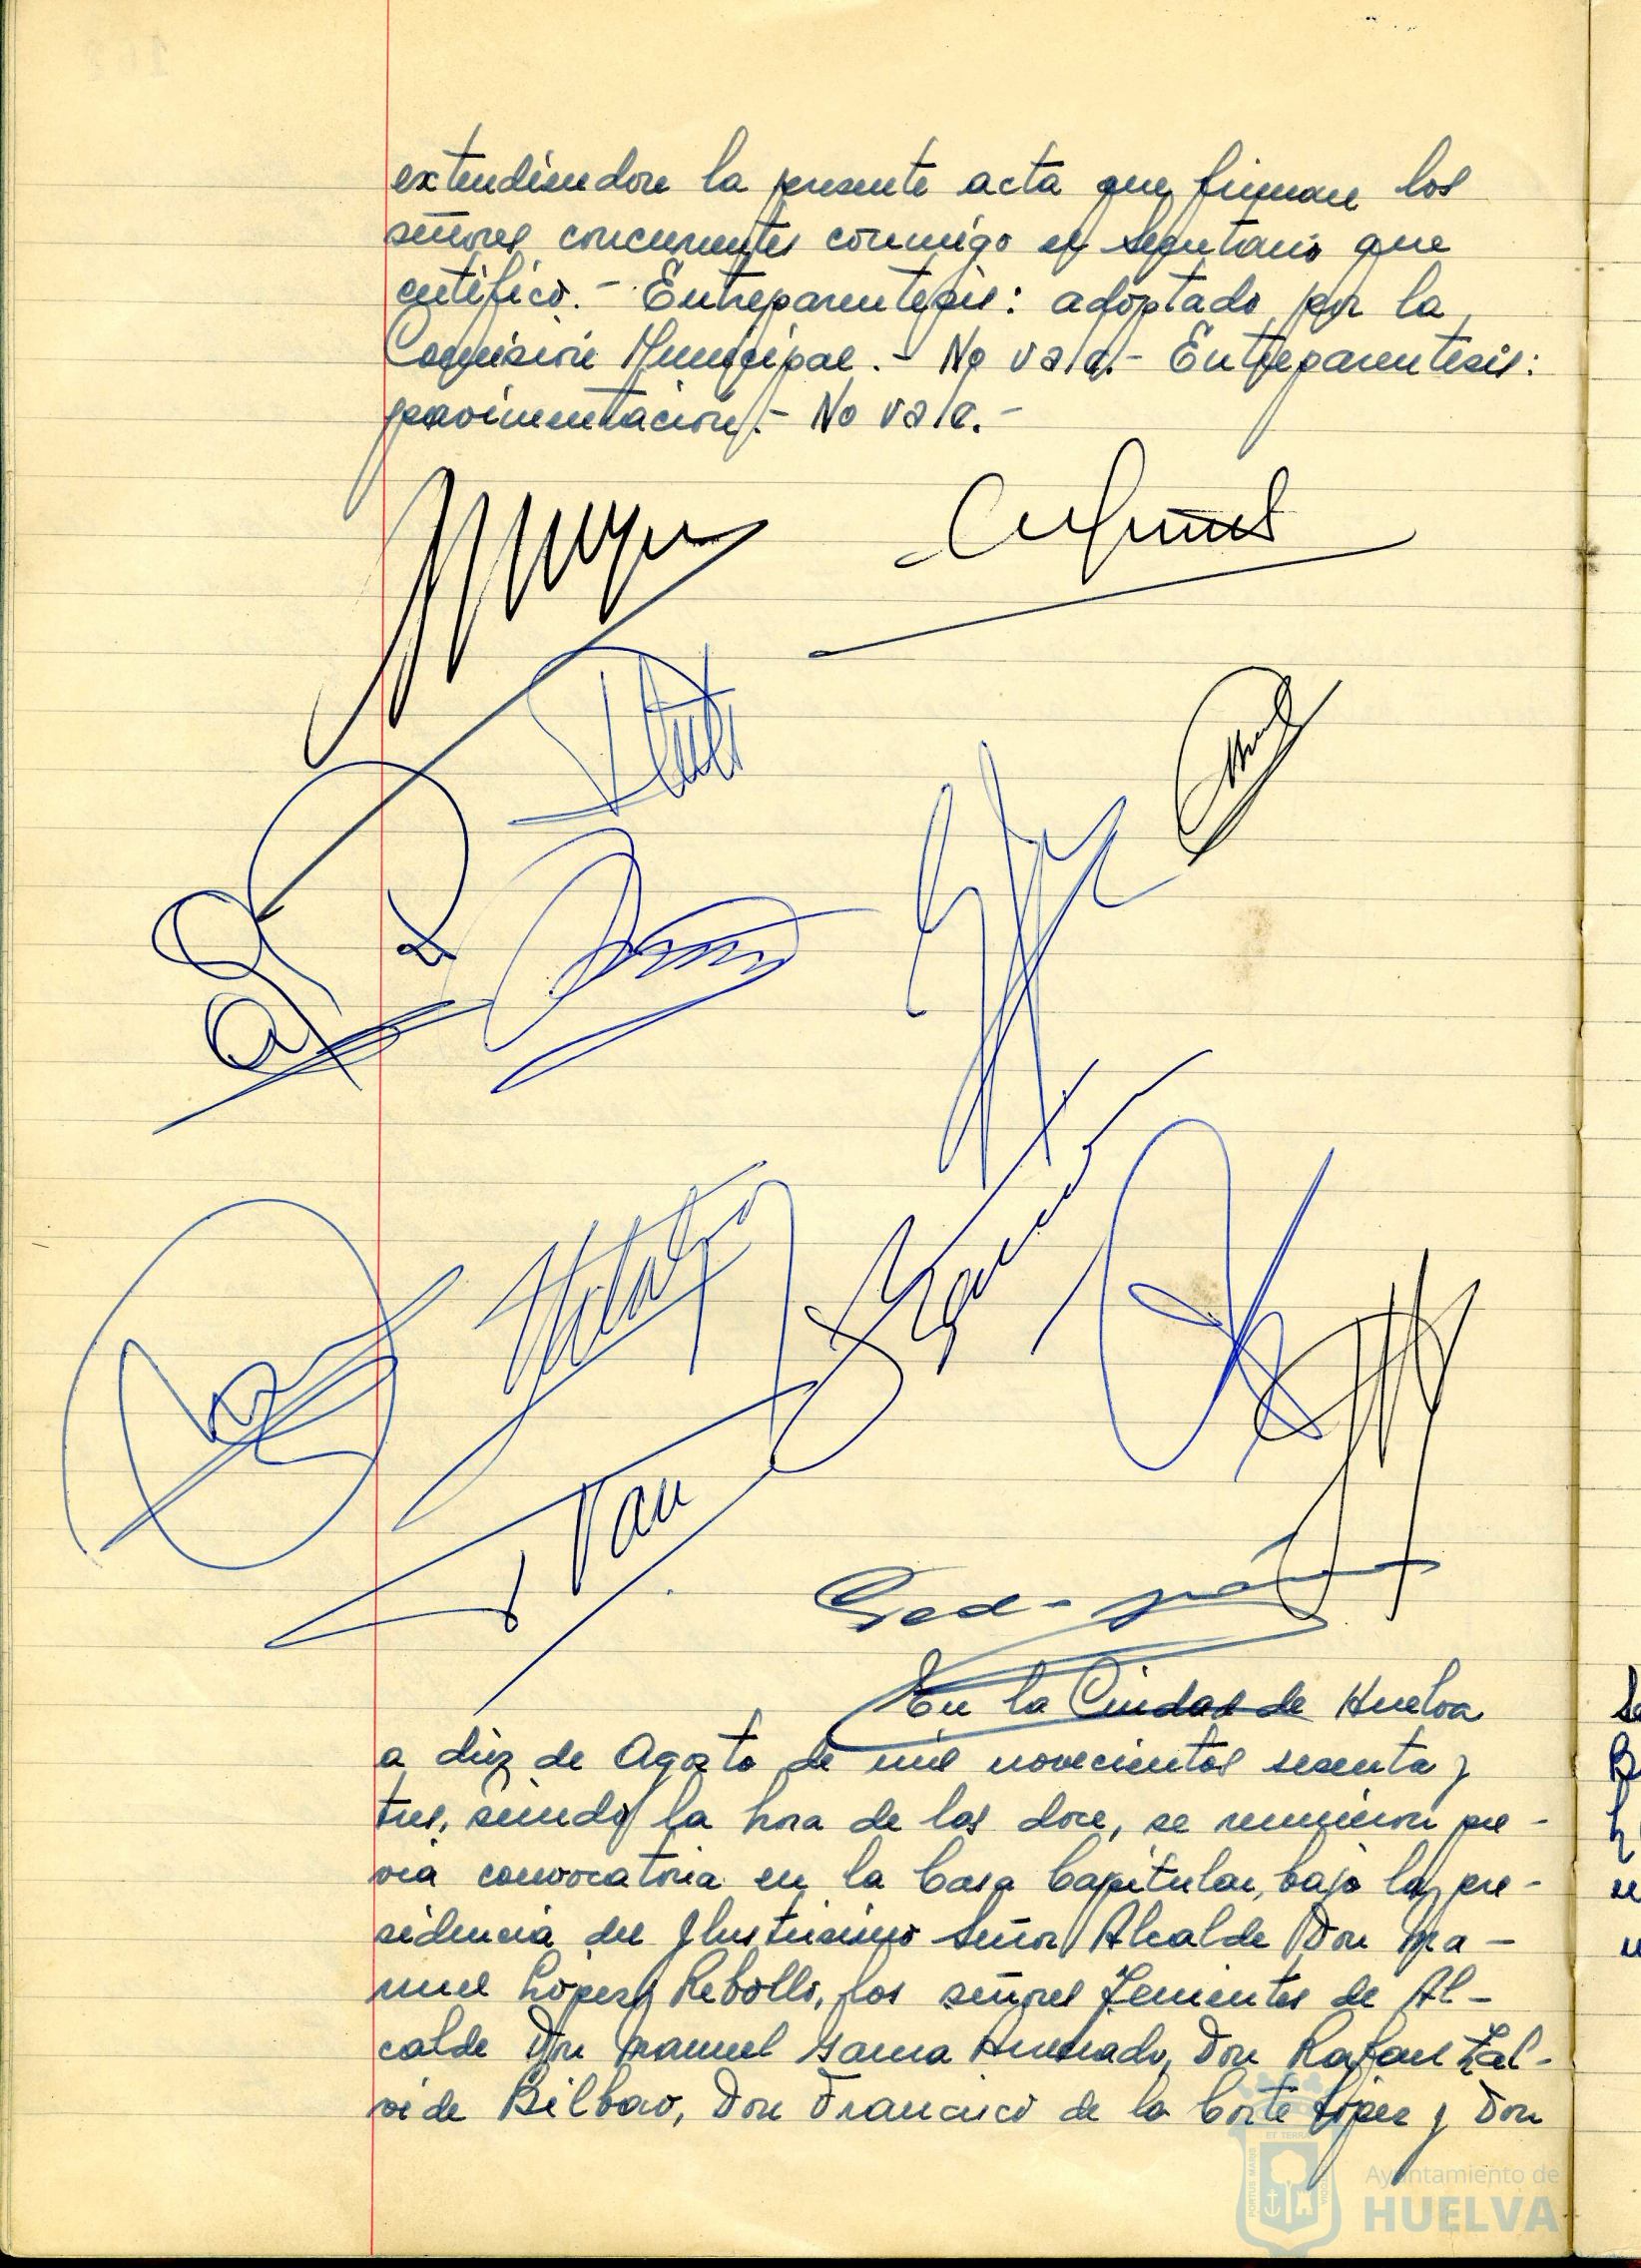 extendiendose la presente acta que firman los
señores concurrentes conmigo el Secretario que
certifico.- Entreparentesis: adoptado por la
Comisión Municipal.- No vale.- Entreparentesis:
pavimentación.- No vale.-
En la Ciudad de Huelva
a diez de Agosto de mil novecientos sesenta y
tres, siendo la hora de las doce, se reunieron pre-
via convocatoria en la Casa Capitular, bajo la pre-
sidencia del Ilustrisimo Señor Alcalde Don Ma-
nuel López Rebollo, los señores Tenientes de Al-
calde Don Manuel Garcia Don Rafael Zal-
vide Bilbao, Don Francisco de la Corte López y Don
PORTUS MARIS
ET TERRAE
CUSTODIA
Ayuntamiento de
HUELVA